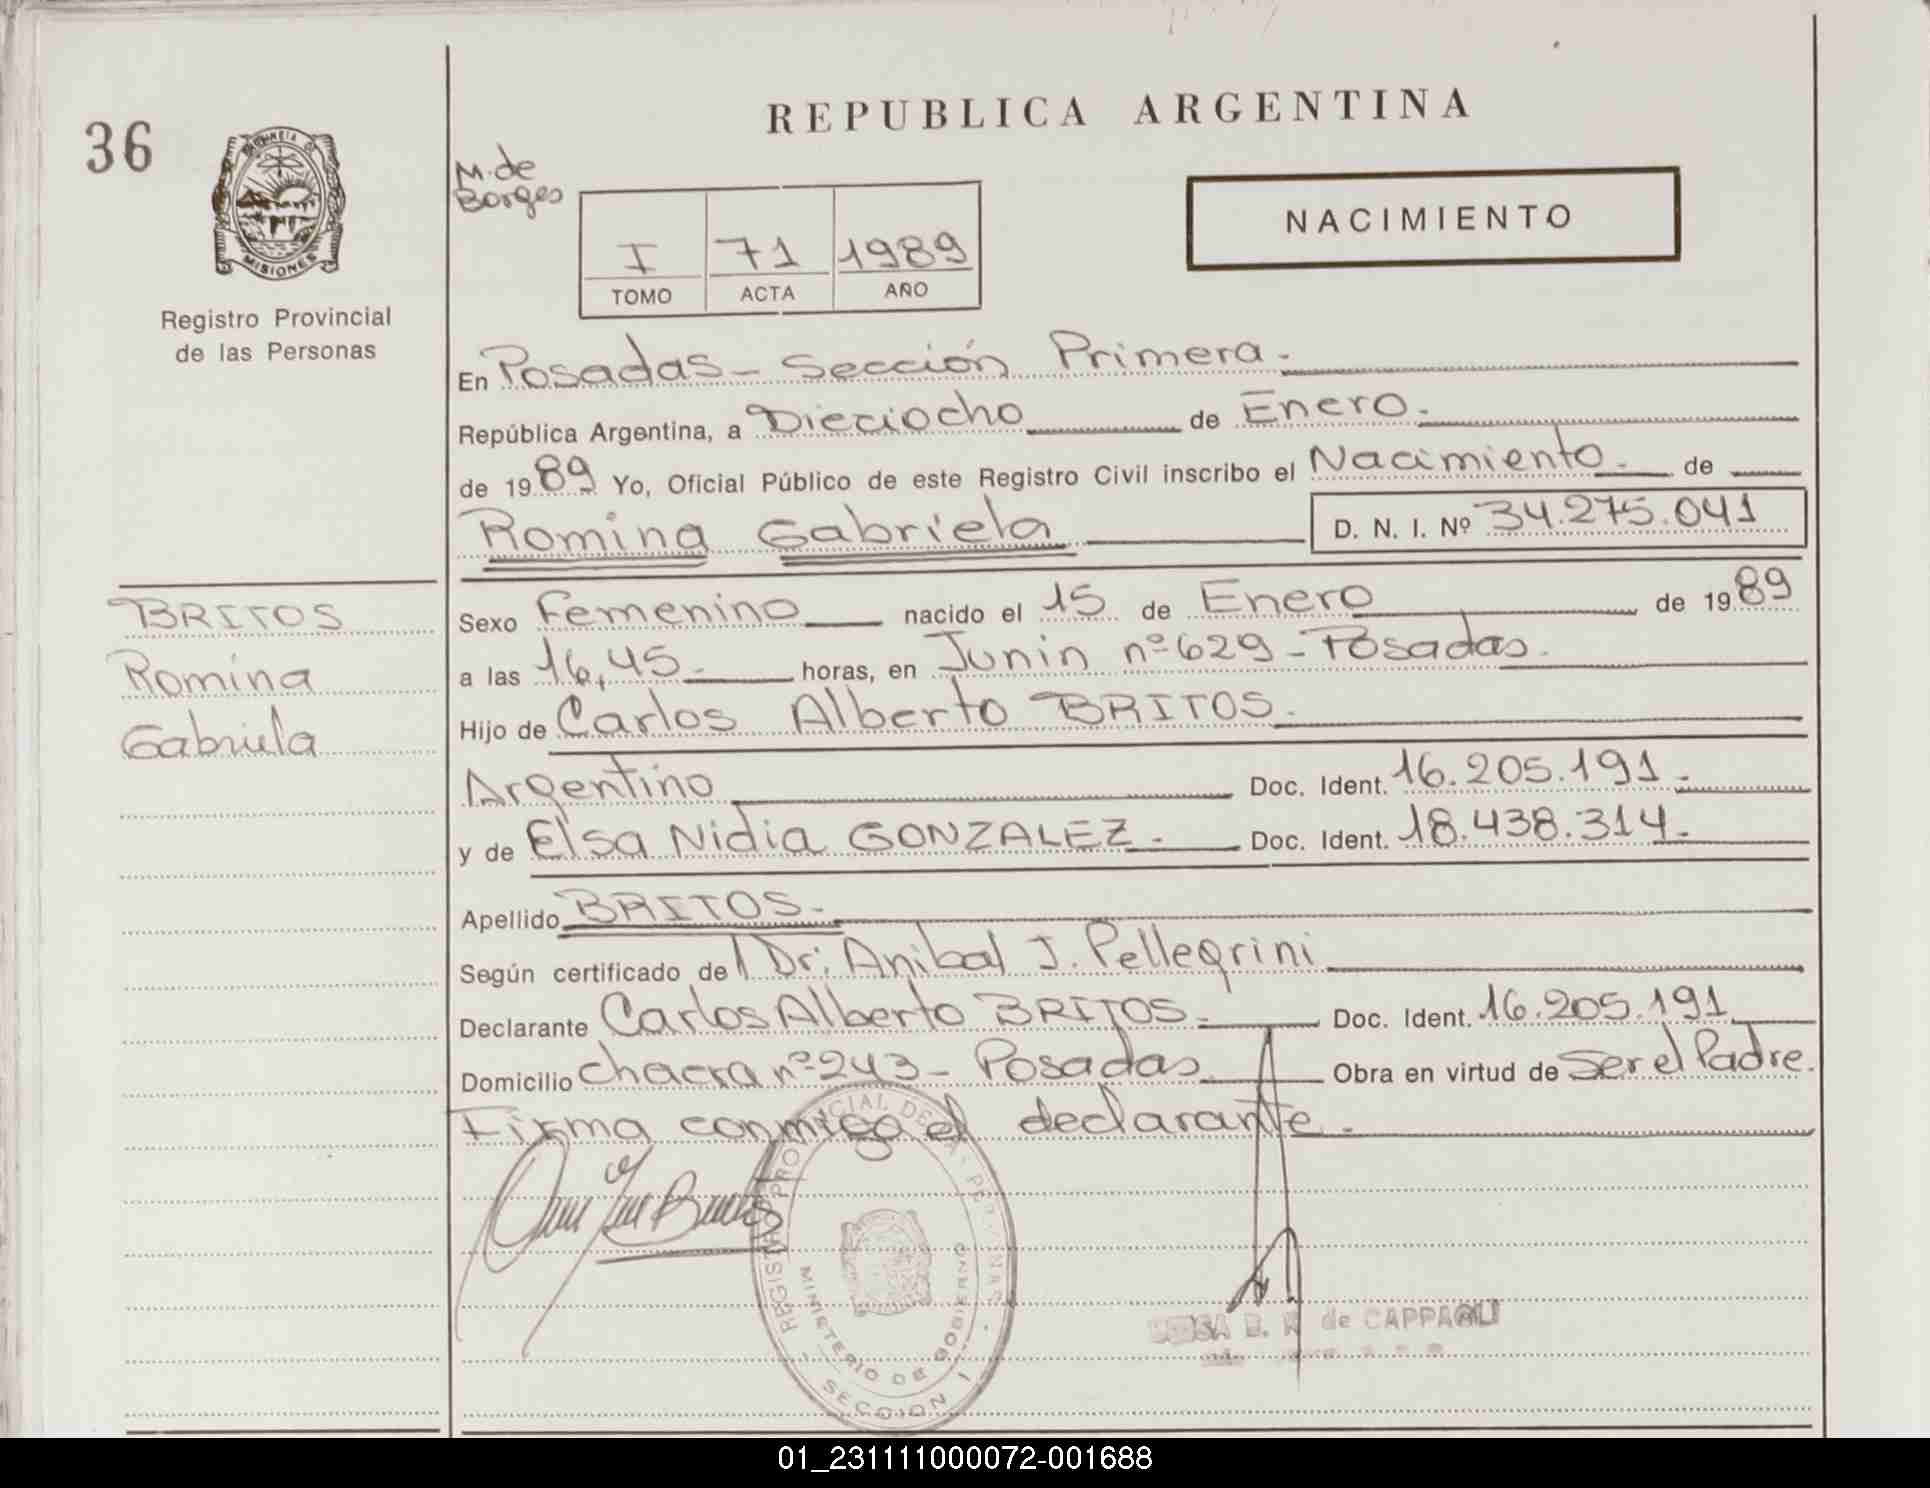 REPUBLICA ARGENTINA
36
PROVINCIA DE
MISIONES
M. de
Borges
NACIMIENTO
I 71 1989
TOMO ACTA AÑO
Registro Provincial
de las Personas
En Posadas - Sección Primera.
República Argentina, a Dieciocho de Enero.
de 1989 Yo, Oficial Público de este Registro Civil inscribo el Nacimiento. de
Romina Gabriela D. N. I. Nº 34.275.041
BRITOS
Romina
Gabriela
Sexo Femenino nacido el 15 de Enero de 1989
a las 16,45 horas, en Junin nº 629 - Posadas.
Hijo de Carlos Alberto BRITOS.
Argentino Doc. Ident. 16.205.191.
y de Elsa Nidia GONZALEZ. Doc. Ident. 18.438.314.
Apellido BRITOS.
Según certificado de Dr: Anibal J. Pellegrini
Declarante Carlos Alberto BRITOS. Doc. Ident. 16.205.191
Domicilio chacra nº 243 - Posadas Obra en virtud de Ser el Padre.
Firma conmigo el declarante.
REGISTRO PROVINCIAL DE LAS PERSONAS
MINISTERIO DE GOBIERNO
SECCION 1
de CAPPAGLI
01_231111000072-001688